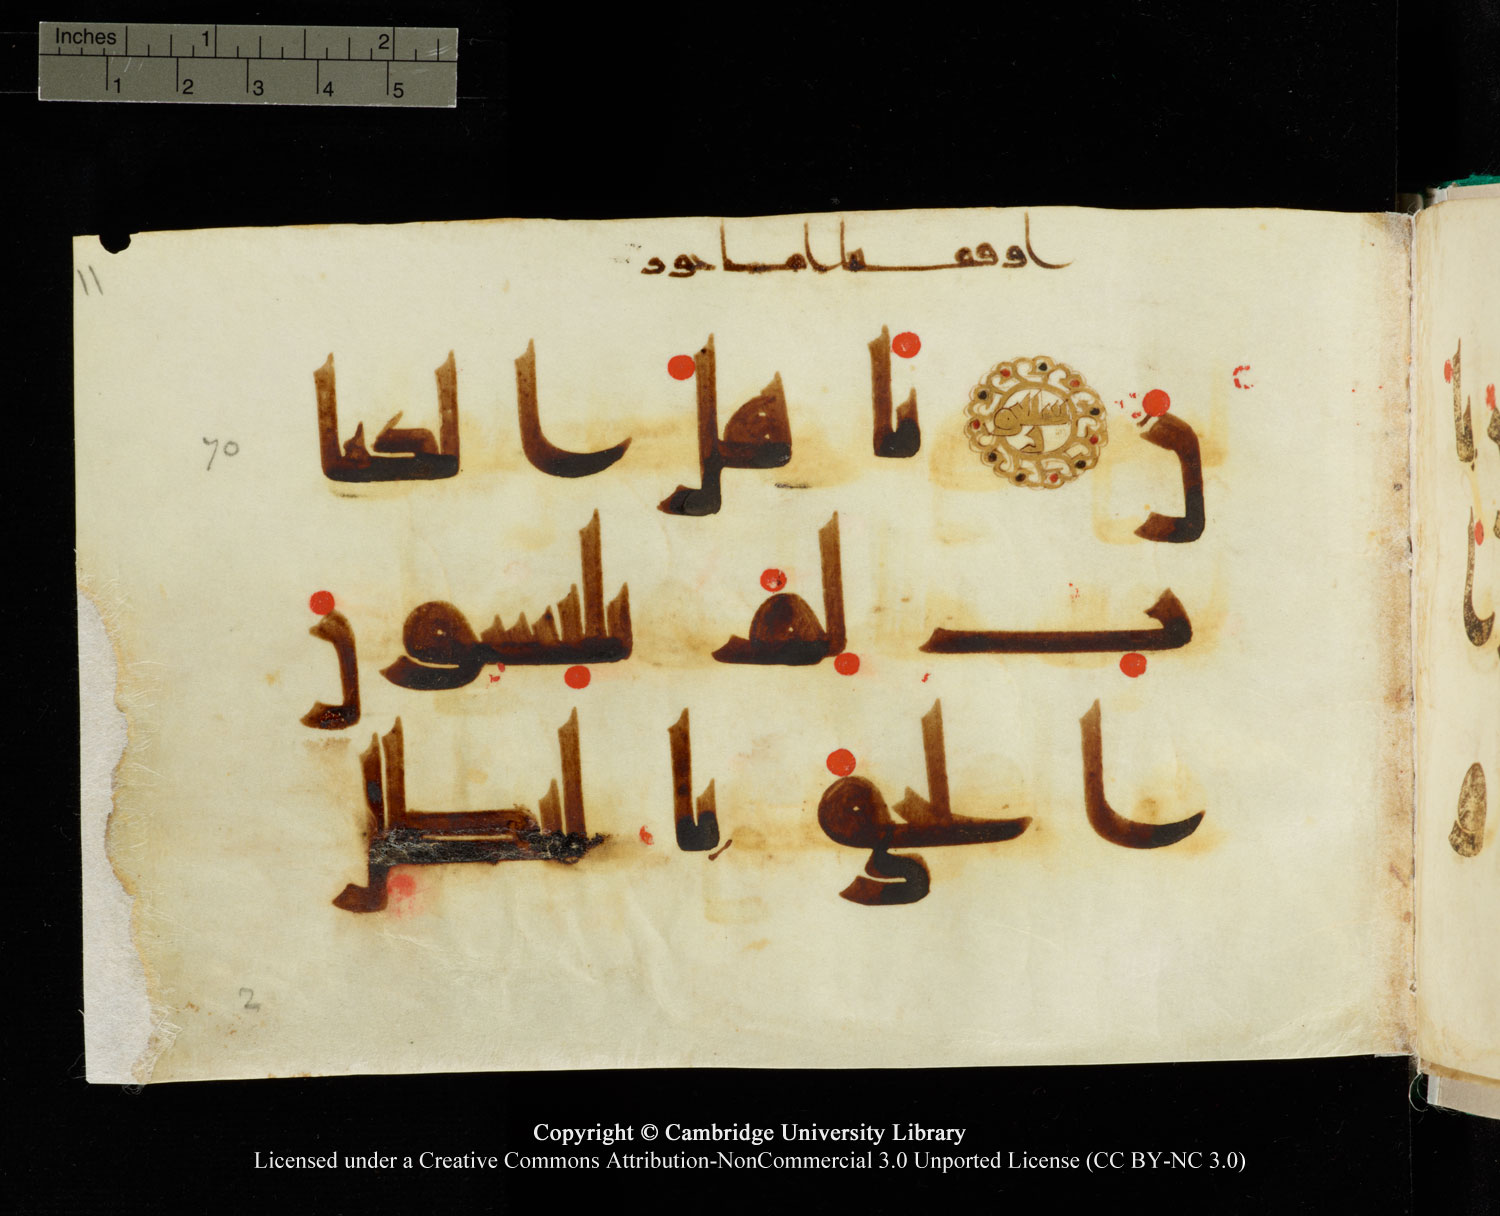 Inches 1 2
1 2 3 4 5
اماجور
11
ن يا هل الكتا
70
ب لم تلبسون
الحق بالبطل
2
Copyright © Cambridge University Library
Licensed under a Creative Commons Attribution-NonCommercial 3.0 Unported License (CC BY-NC 3.0)